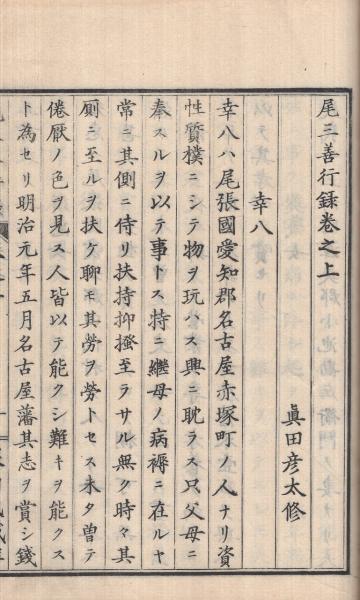 尾三善行録巻之上
眞田彦太修
幸八
幸八ハ尾張國愛知郡名古屋赤塚町ノ人ナリ資
性質樸ニシテ物ヲ玩ハス興ニ耽ラス只父母ニ
奉スルヲ以テ事トス特ニ繼母ノ病褥ニ在ルヤ
常ニ其側ニ侍リ扶持抑搔至ラサル無ク時々其
厠ニ至ルヲ扶ケ聊モ其勞ヲ勞トセス未タ曽テ
倦厭ノ色ヲ見ス人皆以テ能クシ難キヲ能クス
ト為セリ明治元年五月名古屋藩其志ヲ賞シ錢